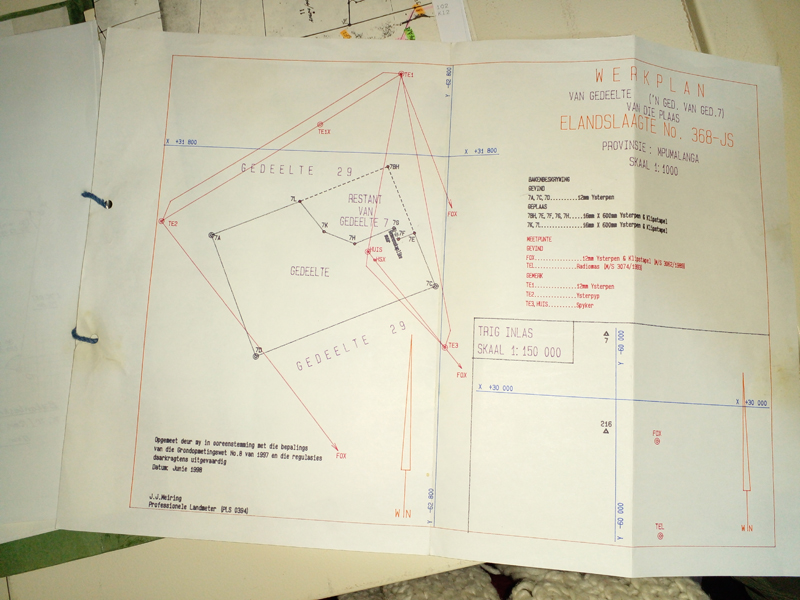 WERKPLAN
VAN GEDEELTE ('N GED. VAN GED.7)
VAN DIE PLAAS
ELANDSLAAGTE No. 368-JS
PROVINSIE: MPUMALANGA
SKAAL 1:1000
BAKENBESKRYWING
GEVIND
7A, 7C, 7D.........12mm Ysterpen
GEPLAAS
7BH, 7E, 7F, 7G, 7H.....16mm X 600mm Ysterpen & Klipstapel
7K, 7L..................16mm X 600mm Ysterpen & Klipstapel
MEETPUNTE
GEVIND
FOX............12mm Ysterpen & Klipstapel
TEL............Radiomas
BEMERK
TE1............12mm Ysterpen
TE2............Ysterpyp
TE3, HUIS......Spyker
TE1
Y -62 800
TE1F
X +31 800
X +31 800
GEDEELTE 29
7BH
7L
RESTANT
VAN
GEDEELTE 7
FOX
TE2
7A
7K
7G
7H
7F
7E
HUIS
GEDEELTE
7C
7D
GEDEELTE 29
TE3
FOX
FOX
Opgemeet deur my in ooreenstemming met die bepalings
van die Grondopmetingswet No.8 van 1997 en die regulasies
daarkragtens uitgevaardig
Datum: Junie 1998
J.J.Meiring
Professionele Landmeter (PLS 0394)
WN
Y -62 800
TRIG INLAS
SKAAL 1:150 000
7
Y -60 000
X +30 000
X +30 000
216
FOX
TEL
Y -60 000
WN